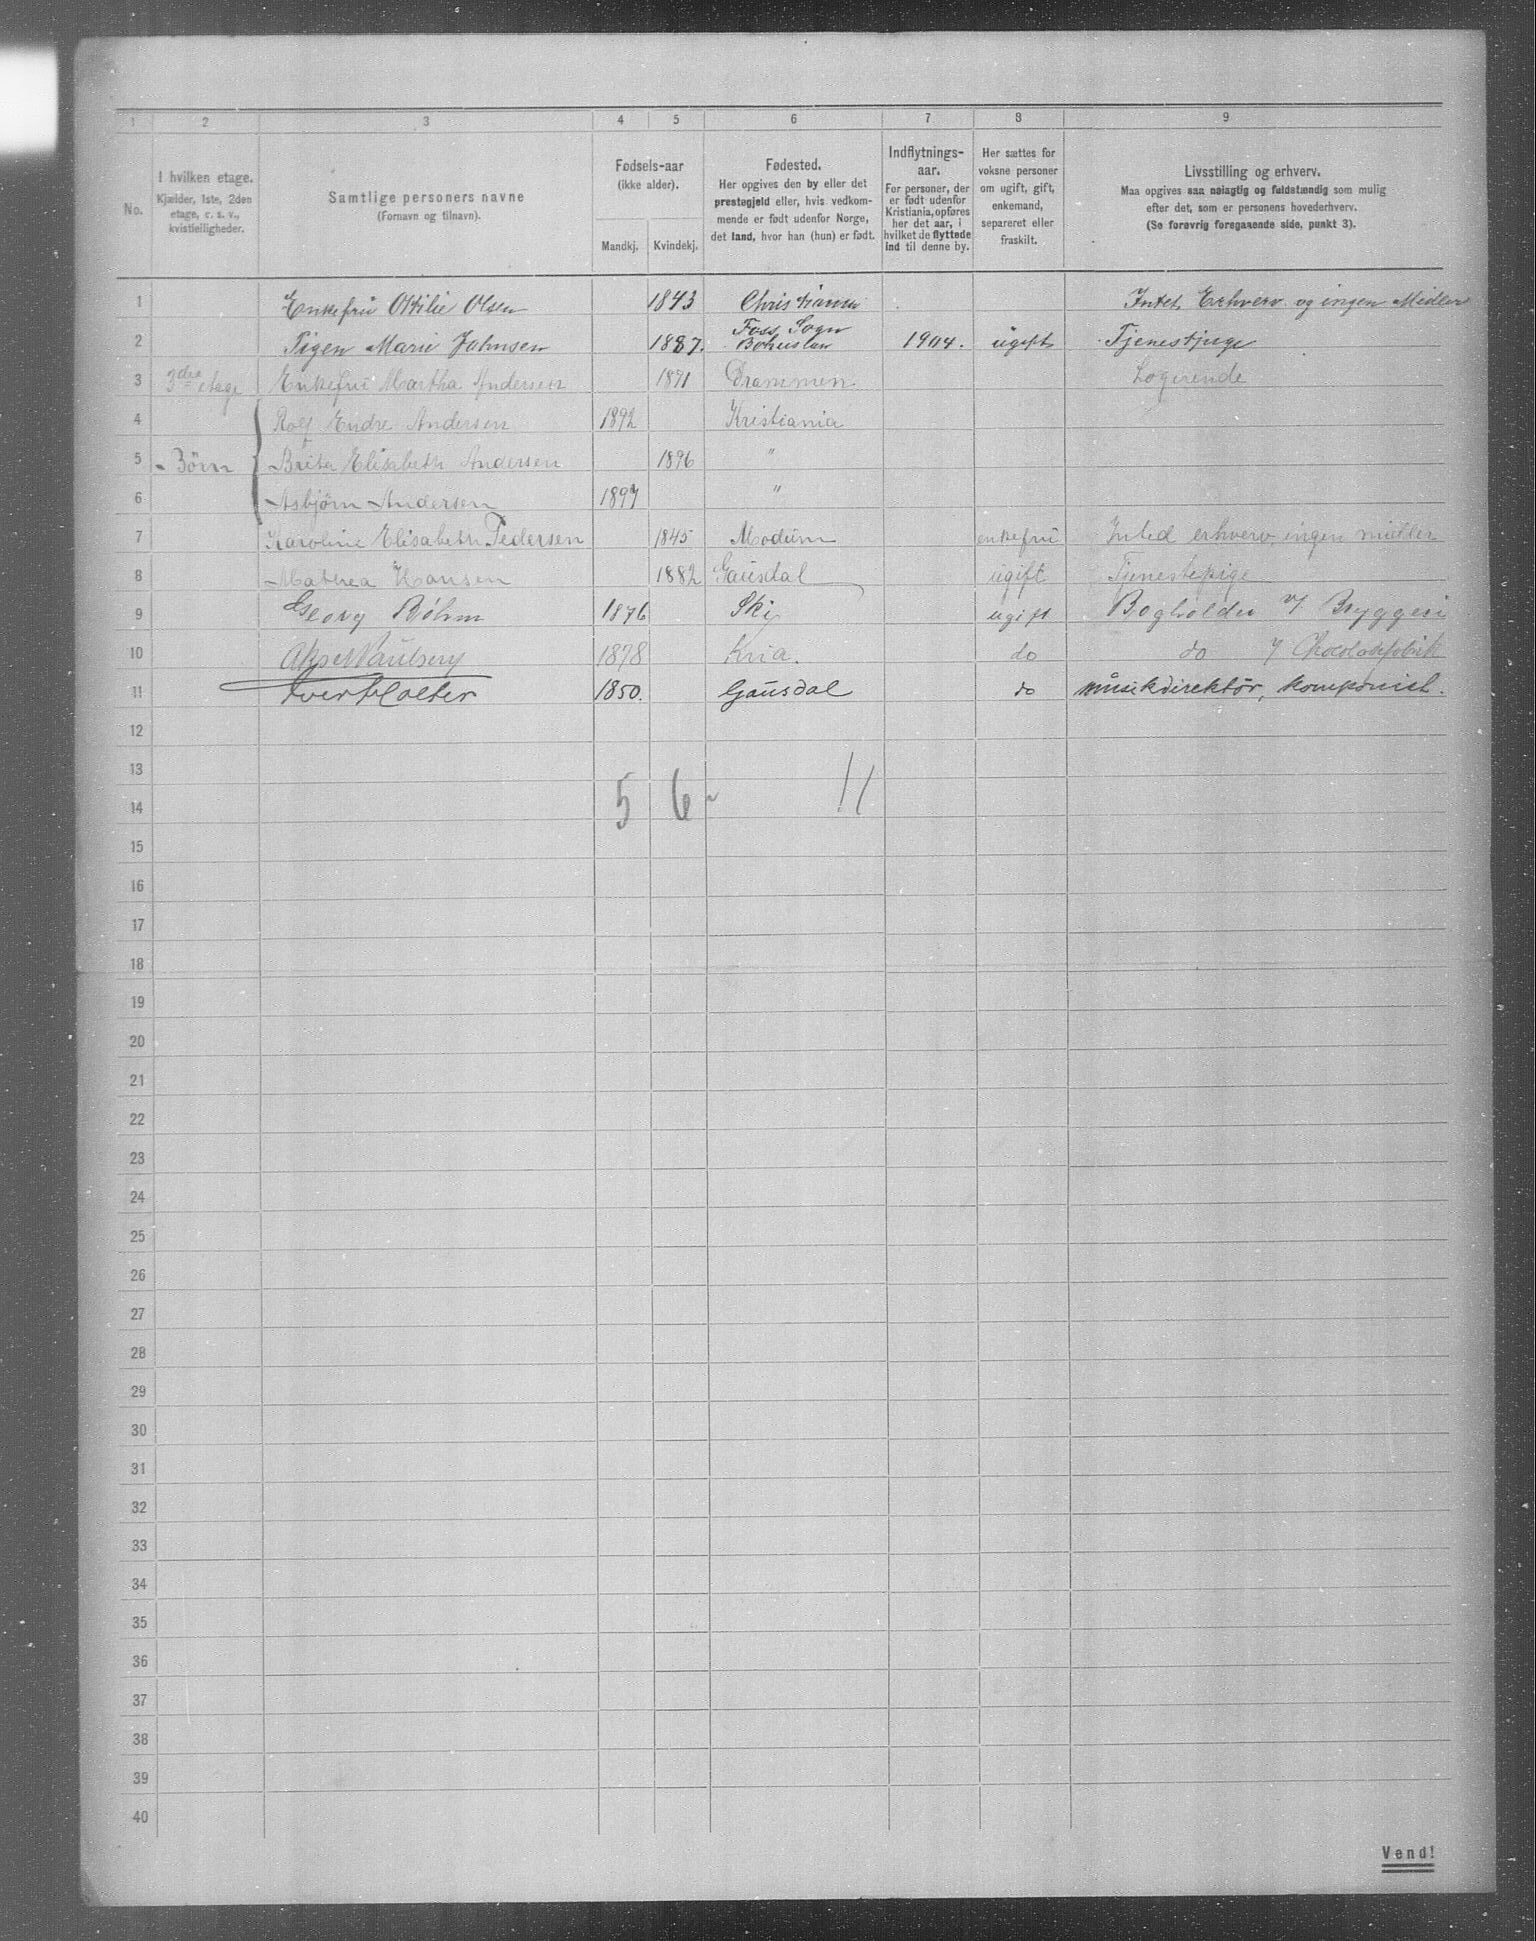 1 2 3 4 5 6 7 8 9
No.
I hvilken etage.
Kjælder, 1ste, 2den
etage, o. s. v.,
kvistleiligheder.
Samtlige personers navne
(Fornavn og tilnavn).
Fødsels-aar
(ikke alder).
Mandkj. Kvindekj.
Fødested.
Her opgives den by eller det
prestegjeld eller, hvis vedkom-
mende er født udenfor Norge,
det land, hvor han (hun) er født.
Indflytnings-
aar.
For personer, der
er født udenfor
Kristiania, opføres
her det aar, i
hvilket de flyttede
ind til denne by.
Her sættes for
voksne personer
om ugift, gift,
enkemand,
separeret eller
fraskilt.
Livsstilling og erhverv.
Maa opgives saa nøiagtig og fuldstændig som mulig
efter det, som er personens hovederhverv.
(Se forøvrig foregaaende side, punkt 3).
1 Enkefru Ottilie Olsen 1843 Christiania Intet Erhverv og ingen Midler
2 Pigen Marie Johnsen 1887. Foss Sogn Bohuslan 1904. ugift Tjenestpige
3 3die etage Enkefru Martha Andersen 1871 Drammen Logerende
4 Rolf Endre Andersen 1892 Kristiania
5 Børn Brita Elisabeth Andersen 1896 "
6 Asbjørn Andersen 1897 "
7 Karoline Elisabeth Pedersen 1845 Modum enkefru Inted erhverv ingen midler
8 Mathea Hansen 1882 Gausdal ugift Tjenestepige
9 Georg Bøhm 1876 Ski ugift Bogholder v/ Bryggeri
10 Aksel Paulsen 1878 Kria. do do / Chocoladefabrik
11 Iver Holter 1850. Gausdal do musikdirektør, komponist.
12
13
14 5 6 11
15
16
17
18
19
20
21
22
23
24
25
26
27
28
29
30
31
32
33
34
35
36
37
38
39
40
Vend!